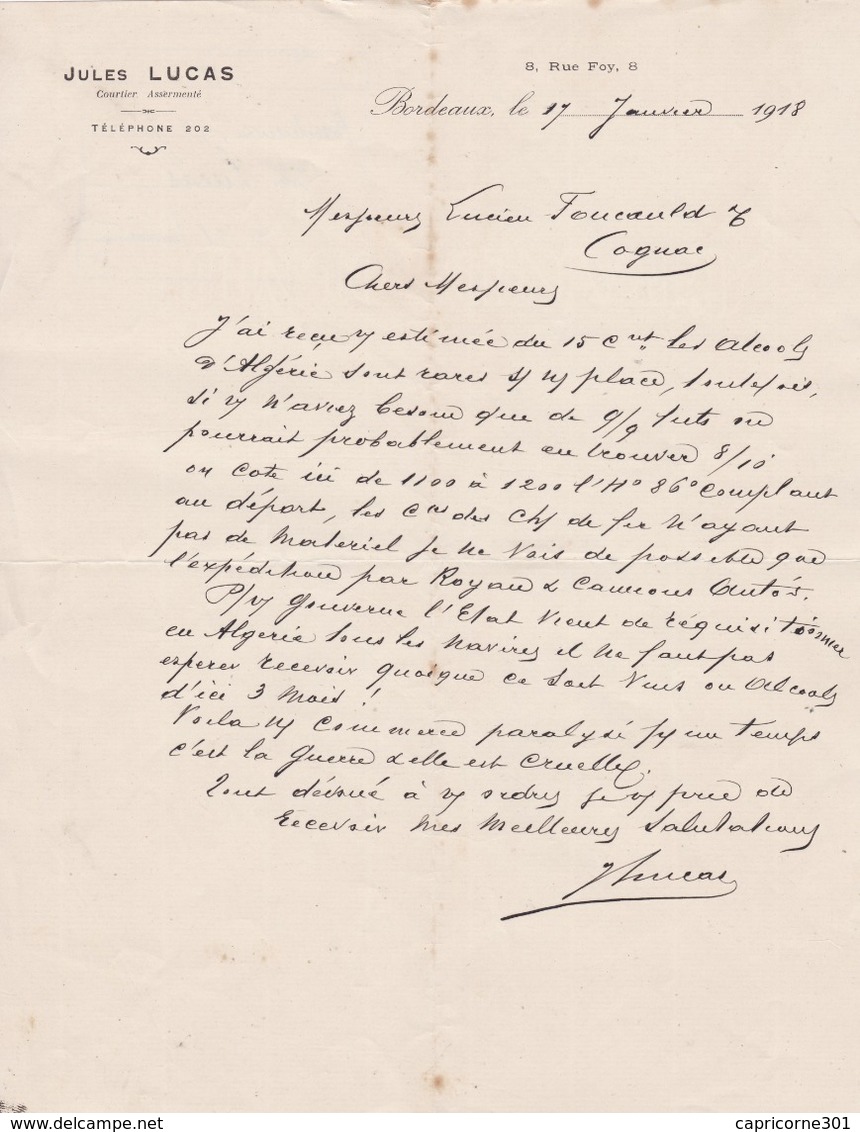 JULES LUCAS
Courtier Assermenté
TÉLÉPHONE 202
8, Rue Foy, 8
Bordeaux, le 17 Janvier 1918
Messieurs Lucien Foucauld &
Cognac
Chers Messieurs
J'ai reçu v/ estimée du 15 cnt. Les alcools
d'Algérie sont rares s/ n/ place, toutefois,
si v/ n'aviez besoin que de q/q futs on
pourrait probablement en trouver 8/10
on cote ici de 1100 à 1200 l'Ho 86° comptant
au départ, les Cies des Ch/ de fer n'ayant
pas de matériel je ne vois de possible que
l'expédition par Royan & camions autos.
P/ v/ gouverne l'Etat vient de réquisitionner
en Algérie tous les navires il ne faut pas
esperer recevoir quoique ce soit vins ou alcools
d'ici 3 mois !!
Voila n/ commerce paralysé p/ un temps
c'est la guerre & elle est cruelle.
Tout dévoué à v/ ordres je v/ prie de
recevoir mes meilleures salutations
JLucas
capricorne301